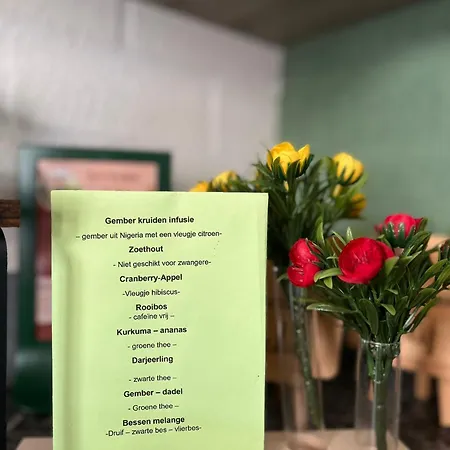 Gember kruiden infusie
– gember uit Nigeria met een vleugje citroen-
Zoethout
- Niet geschikt voor zwangere-
Cranberry-Appel
-Vleugje hibiscus-
Rooibos
- cafeïne vrij –
Kurkuma – ananas
- groene thee –
Darjeerling
- zwarte thee –
Gember – dadel
- Groene thee –
Bessen melange
-Druif – zwarte bes – vlierbes-